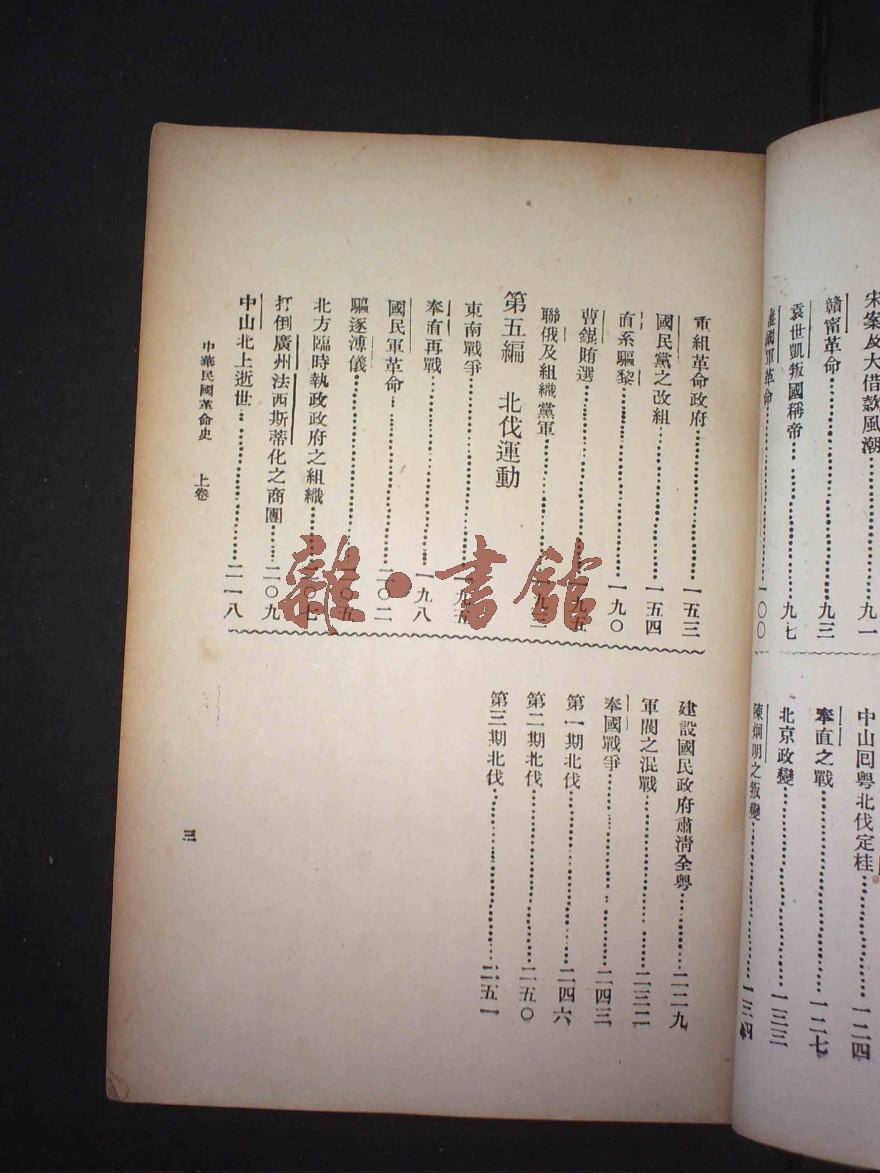 宋案及大借款風潮……九一
贛甯革命……九三
袁世凱叛國稱帝……九七
護國軍革命……一〇〇
中山囘粵北伐定桂……一二四
奉直之戰……一二七
北京政變……一三三
陳烱明之叛變……一三四
重組革命政府……一五三
國民黨之改組……一五四
直系驅黎……一九〇
曹錕賄選……
聯俄及組織黨軍……
第五編　北伐運動
東南戰爭……一九五
奉直再戰……一九八
國民軍革命……二〇二
驅逐溥儀……二〇五
北方臨時執政政府之組織……二〇七
打倒廣州法西斯蒂化之商團……二〇九
中山北上逝世……二一八
建設國民政府肅淸全粵……二二九
軍閥之混戰……二三二
奉國戰爭……二四三
第一期北伐……二四六
第二期北伐……二五〇
第三期北伐……二五一
中華民國革命史　上卷
三
雜·書館